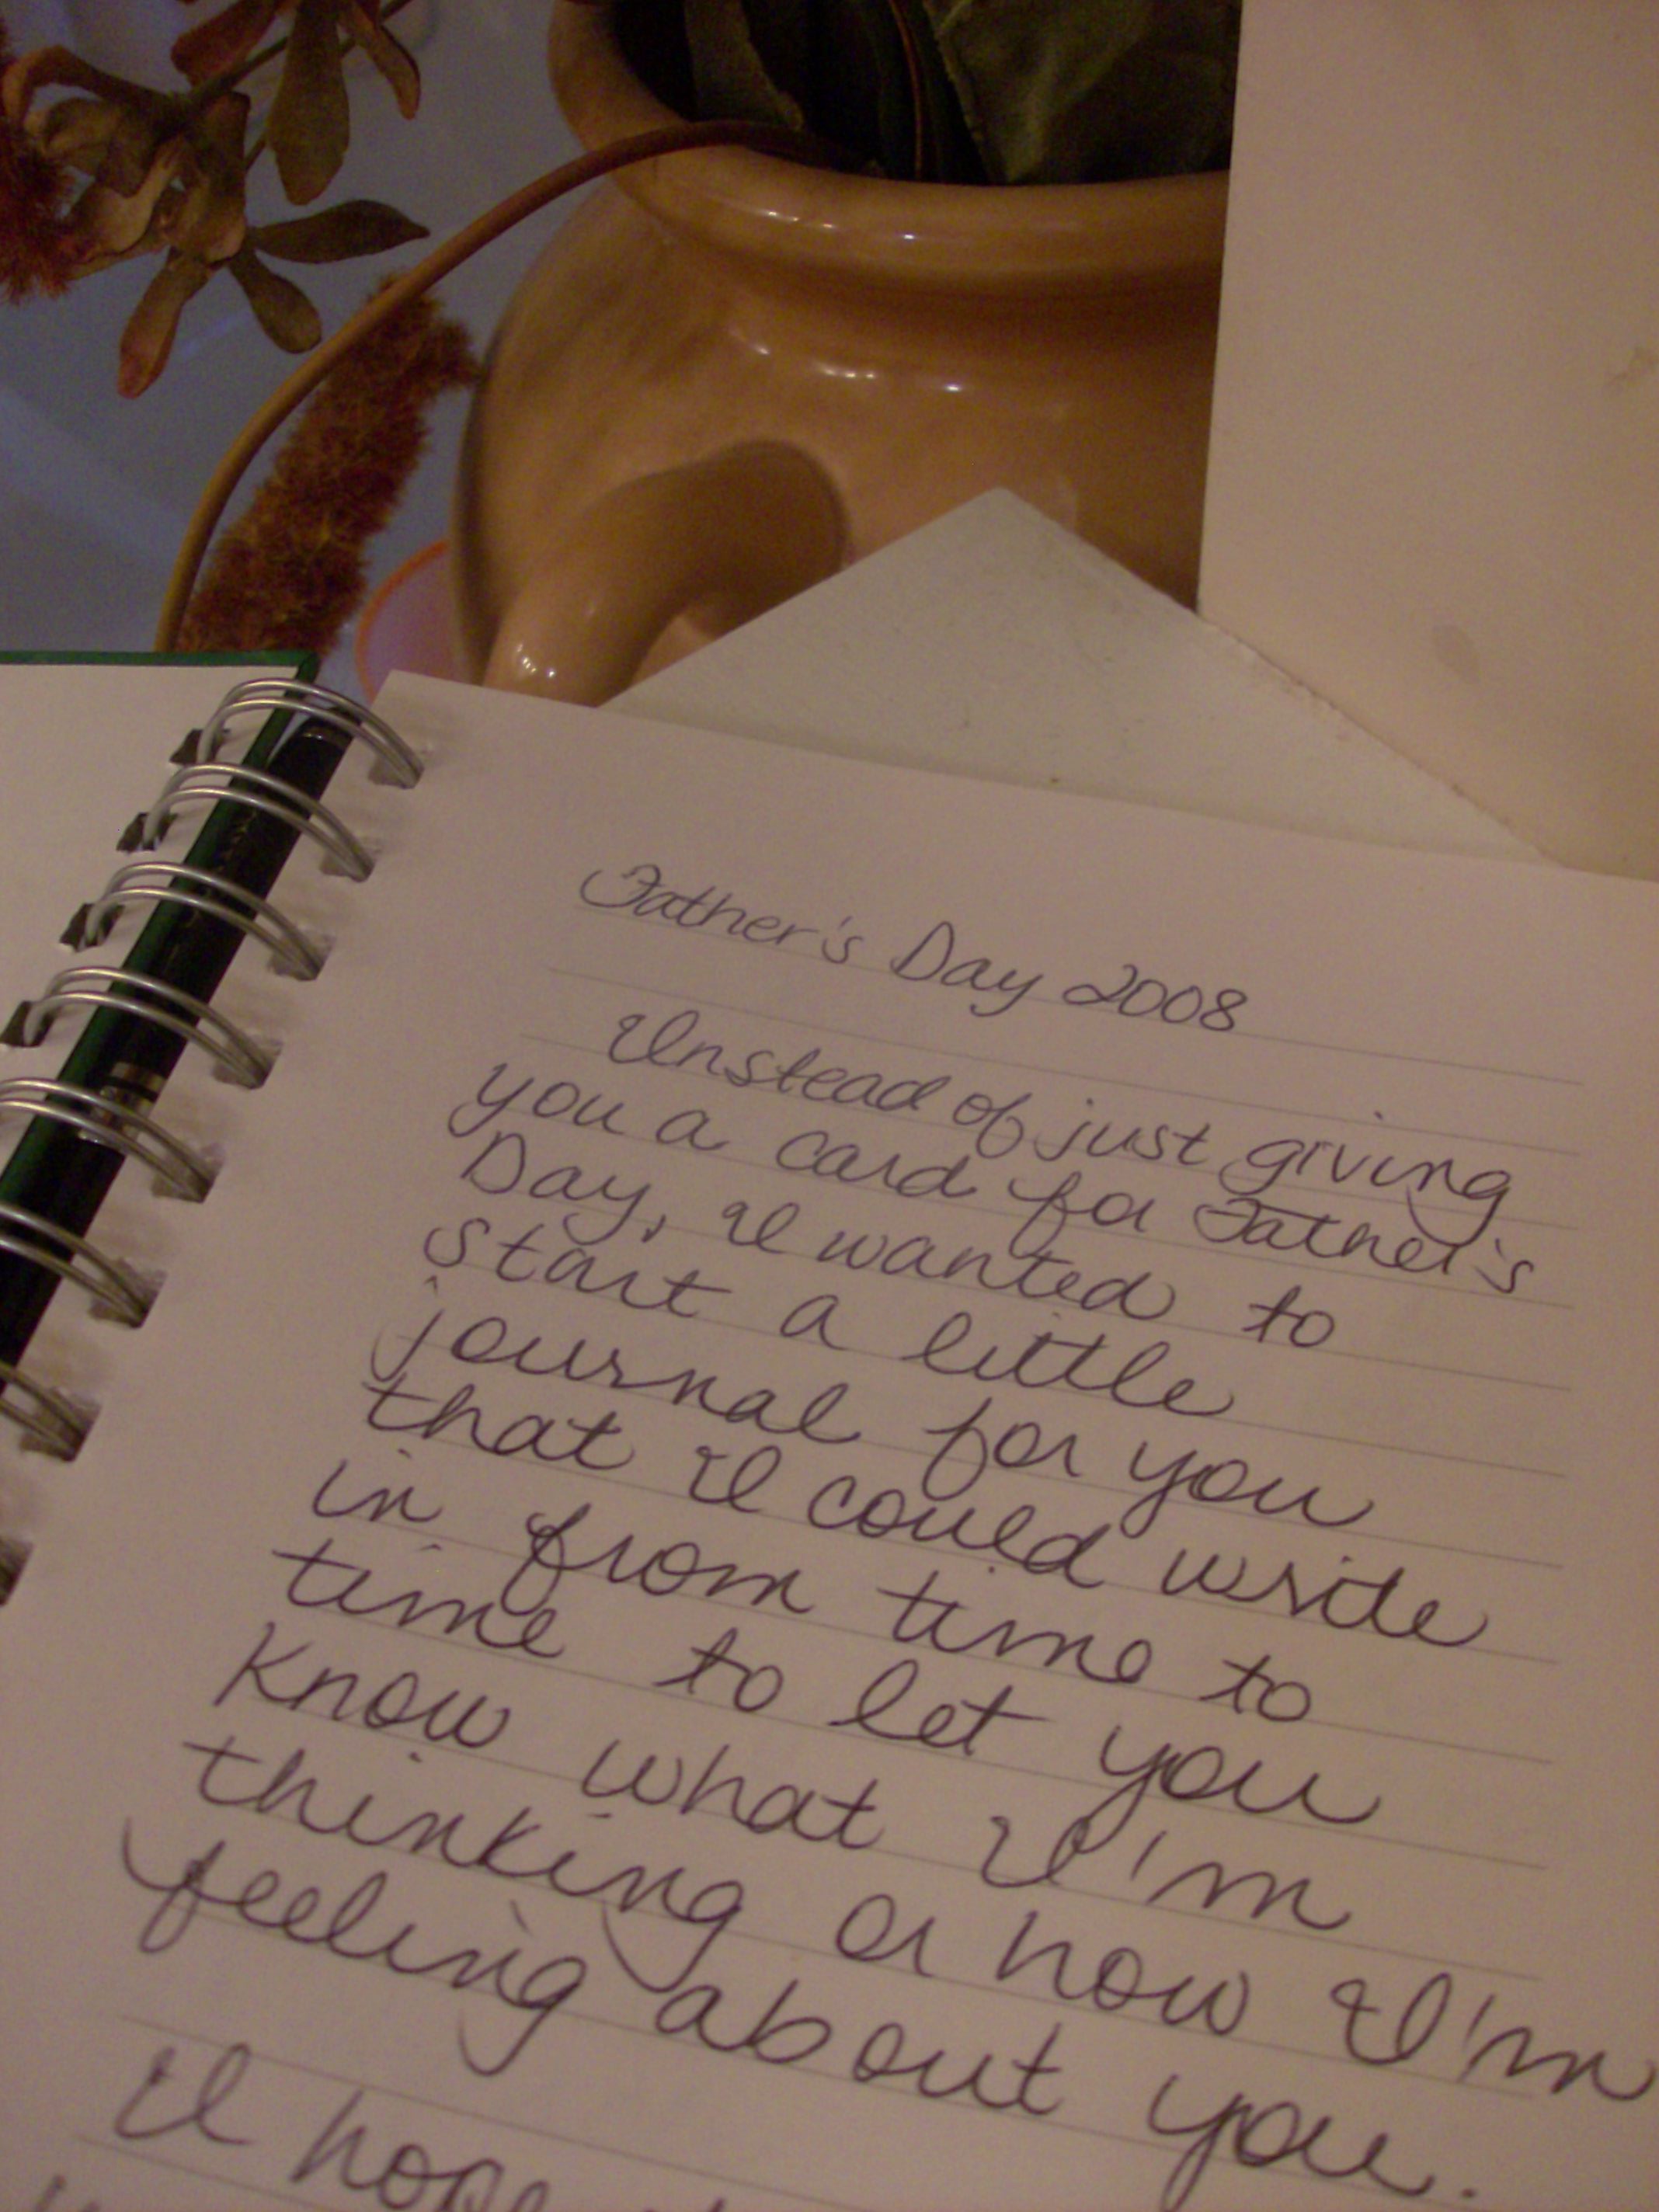 Father's Day 2008
Instead of just giving
you a card for Father's
Day, I wanted to
start a little
journal for you
that I could write
in from time to
time to let you
know what I'm
thinking or how I'm
feeling about you.
I hope